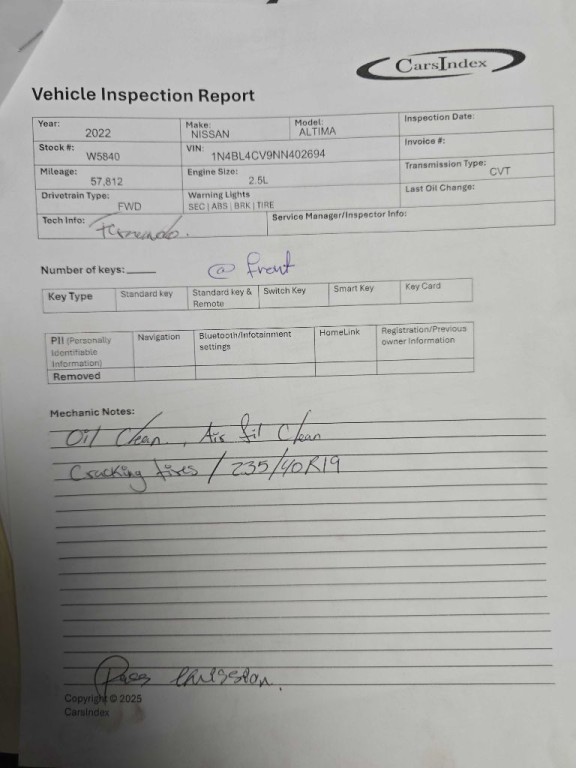 CarsIndex
Vehicle Inspection Report
Year: 2022 Make: NISSAN Model: ALTIMA Inspection Date:
Stock #: W5840 VIN: 1N4BL4CV9NN402694 Invoice #:
Mileage: 57,812 Engine Size: 2.5L Transmission Type: CVT
Drivetrain Type: FWD Warning Lights SEC | ABS | BRK | TIRE Last Oil Change:
Tech Info: Fernando. Service Manager/Inspector Info:
Number of keys: @ front
Key Type Standard key Standard key & Remote Switch Key Smart Key Key Card
PII (Personally Identifiable Information) Navigation Bluetooth/Infotainment settings HomeLink Registration/Previous owner Information
Removed
Mechanic Notes:
Oil Clean, Air fil Clean
Cracking tires / 235/40R19
Pass emission.
Copyright © 2025
CarsIndex